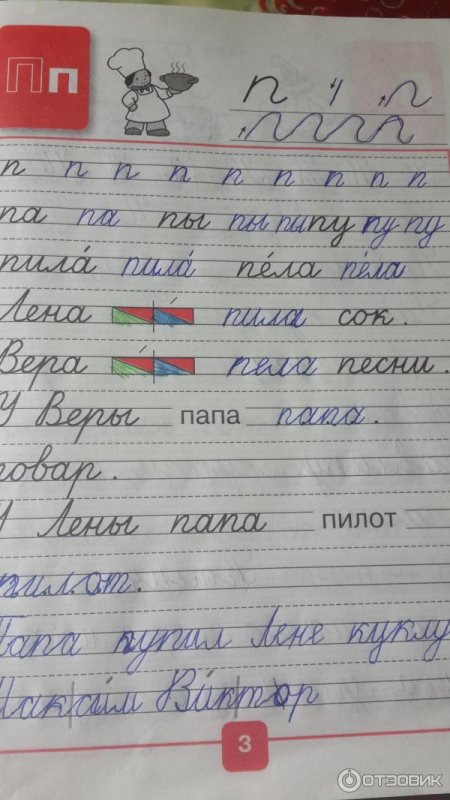 Пп
п
п п п п п п п п п
па па пы пы пы пу пу пу
пила́ пила́ пе́ла пе́ла
Лена пила сок.
Вера пела песни.
У Веры папа папа.
повар.
У Лены папа пилот
пилот.
Папа купил Лене куклу
Мак|си́м Ви́к|т|ор
3
ОТЗОВИК